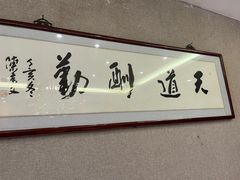 天道酬勤
丁亥冬